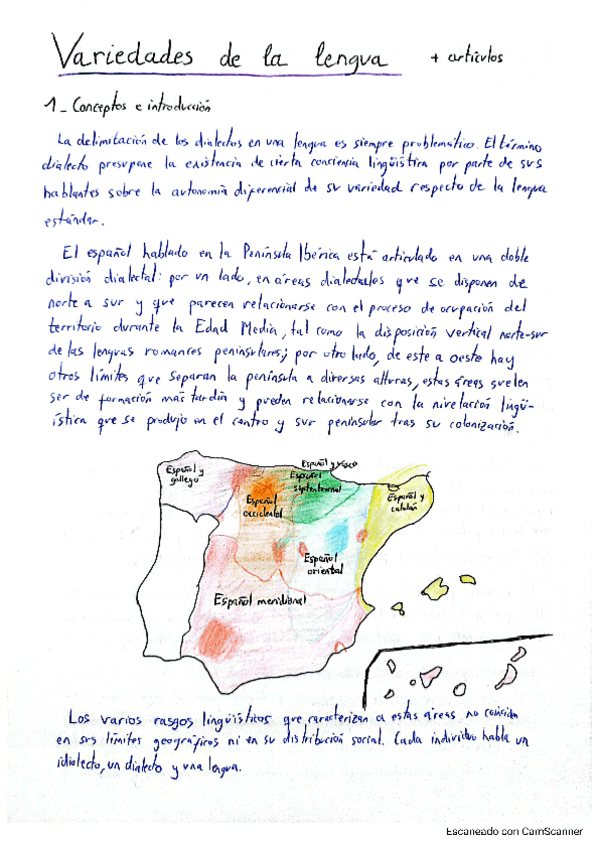 Variedades de la lengua + artículos
1_ Conceptos e introducción
La delimitación de los dialectos en una lengua es siempre problemático. El término
dialecto presupone la existencia de cierta conciencia lingüística por parte de sus
hablantes sobre la autonomía diferencial de su variedad respecto de la lengua
estándar.
El español hablado en la Península Ibérica está articulado en una doble
división dialectal: por un lado, en áreas dialectales que se disponen de
norte a sur y que parecen relacionarse con el proceso de ocupación del
territorio durante la Edad Media, tal como la disposición vertical norte-sur
de las lenguas romances peninsulares; por otro lado, de este a oeste hay
otros límites que separan la península a diversas alturas, estas áreas suelen
ser de formación más tardía y pueden relacionarse con la nivelación lingü-
ística que se produjo en el centro y sur peninsular tras su colonización.
Español y
gallego
Español y vasco
Español
septentrional
Español
occidental
Español y
catalán
Español
oriental
Español meridional
Los varios rasgos lingüísticos que caracterizan a estas áreas no coinciden
en sus límites geográficos ni en su distribución social. Cada individuo habla un
idiolecto, un dialecto y una lengua.
Escaneado con CamScanner